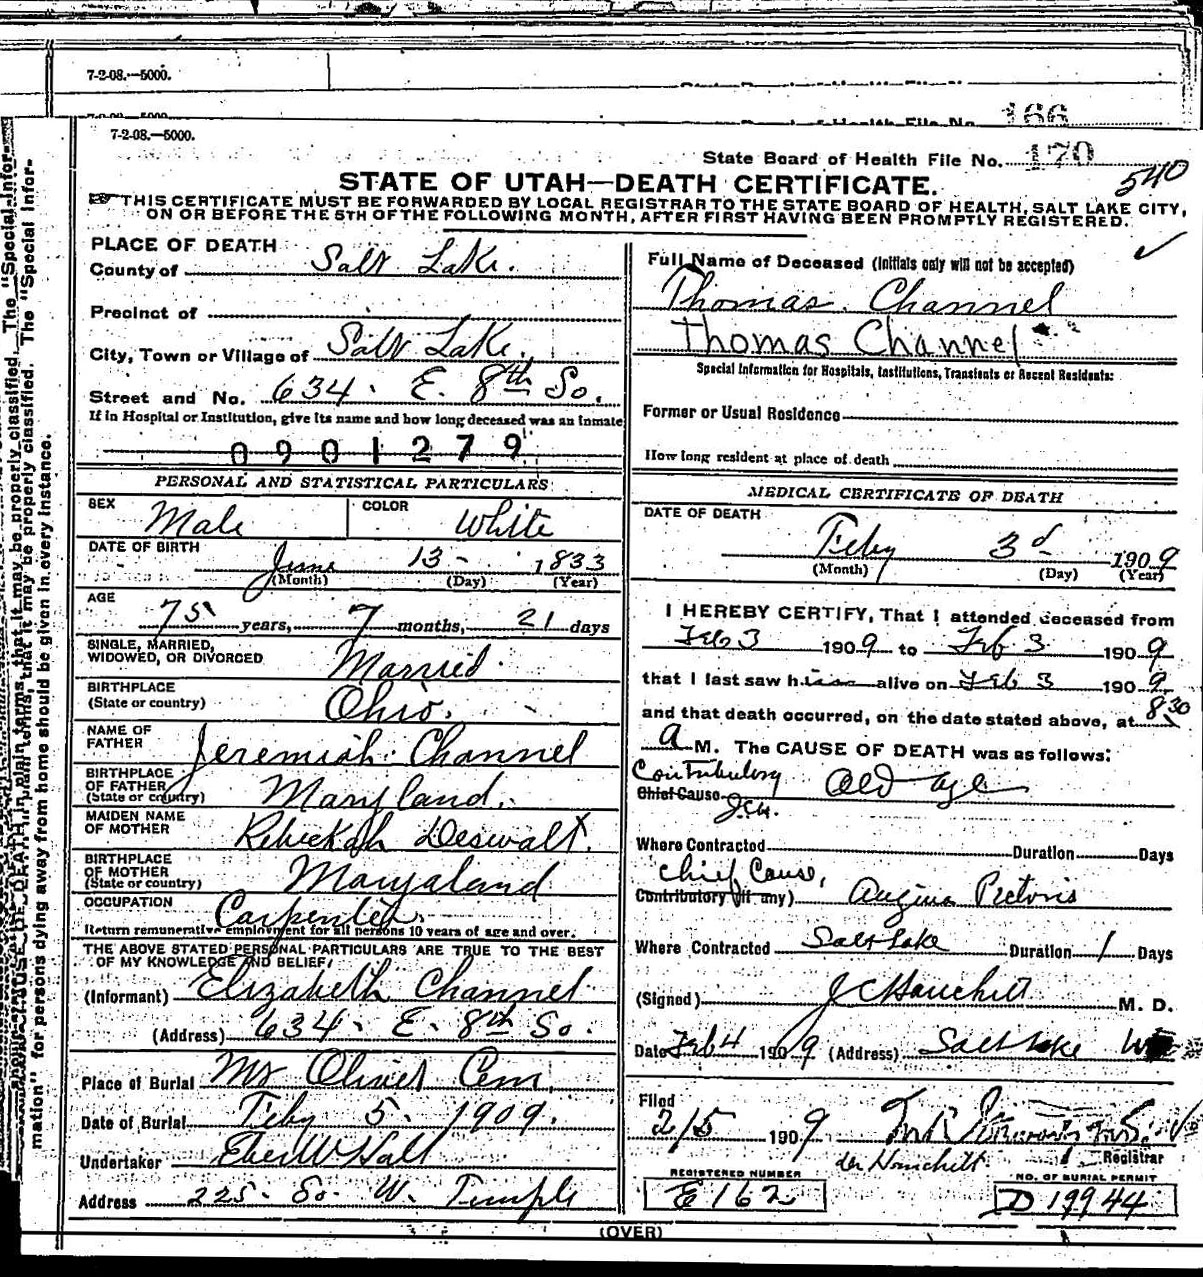 7-2-08.—5000.
166
7-2-08.—5000.
State Board of Health File No. 170
540
STATE OF UTAH—DEATH CERTIFICATE.
THIS CERTIFICATE MUST BE FORWARDED BY LOCAL REGISTRAR TO THE STATE BOARD OF HEALTH, SALT LAKE CITY,
ON OR BEFORE THE 5TH OF THE FOLLOWING MONTH, AFTER FIRST HAVING BEEN PROMPTLY REGISTERED.
PLACE OF DEATH
County of Salt Lake.
Precinct of
City, Town or Village of Salt Lake.
Street and No. 634. E. 8th So.
If in Hospital or Institution, give its name and how long deceased was an inmate
0901279
PERSONAL AND STATISTICAL PARTICULARS
SEX Male COLOR White
DATE OF BIRTH June 13- 1833
(Month) (Day) (Year)
AGE
75 years, 7 months, 21 days
SINGLE, MARRIED,
WIDOWED, OR DIVORCED Married.
BIRTHPLACE
(State or country) Ohio.
NAME OF
FATHER Jeremiah Channel
BIRTHPLACE
OF FATHER
(State or country) Maryland.
MAIDEN NAME
OF MOTHER Rebeckah Deswalt.
BIRTHPLACE
OF MOTHER
(State or country) Maryaland
OCCUPATION Carpenter.
Return remunerative employment for all persons 10 years of age and over.
THE ABOVE STATED PERSONAL PARTICULARS ARE TRUE TO THE BEST
OF MY KNOWLEDGE AND BELIEF
(Informant) Elizabeth Channel
(Address) 634. E. 8th So.
Place of Burial Mt Olivet Cem.
Date of Burial Feby 5. 1909.
Undertaker Eber W Hall
Address 225. So. W. Temple
Full Name of Deceased (Initials only will not be accepted)
Thomas. Channel
Thomas Channel
Special Information for Hospitals, Institutions, Transients or Recent Residents:
Former or Usual Residence
How long resident at place of death
MEDICAL CERTIFICATE OF DEATH
DATE OF DEATH
Feby 3d 1909
(Month) (Day) (Year)
I HEREBY CERTIFY, That I attended deceased from
Feb 3 1909 to Feb 3. 1909
that I last saw him alive on Feb 3 1909
and that death occurred, on the date stated above, at 8 30
a M. The CAUSE OF DEATH was as follows:
Contributory Old age
Chief Cause
J.C.H.
Where Contracted Duration Days
Chief Cause,
Contributory (if any) Angina Pectoris
Where Contracted Salt Lake Duration 1 Days
(Signed) J C Hanchett M. D.
Date Feb 4 1909 (Address) Salt Lake
Filed
2/5 1909
Registrar
REGISTERED NUMBER
E 162
NO. OF BURIAL PERMIT
D 19944
(OVER)
mation" for persons dying away from home should be given in every instance.